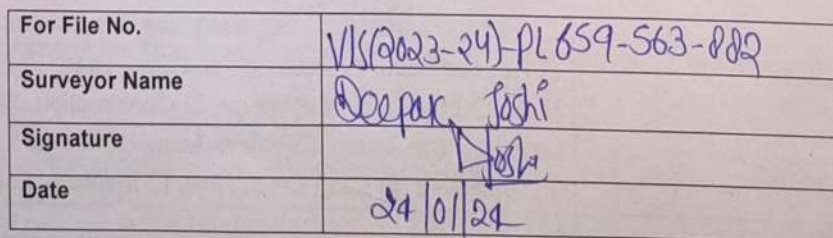 For File No. VIS(2023-24)-PL659-563-882
Surveyor Name Deepak Joshi
Signature Joshi
Date 24/01/24